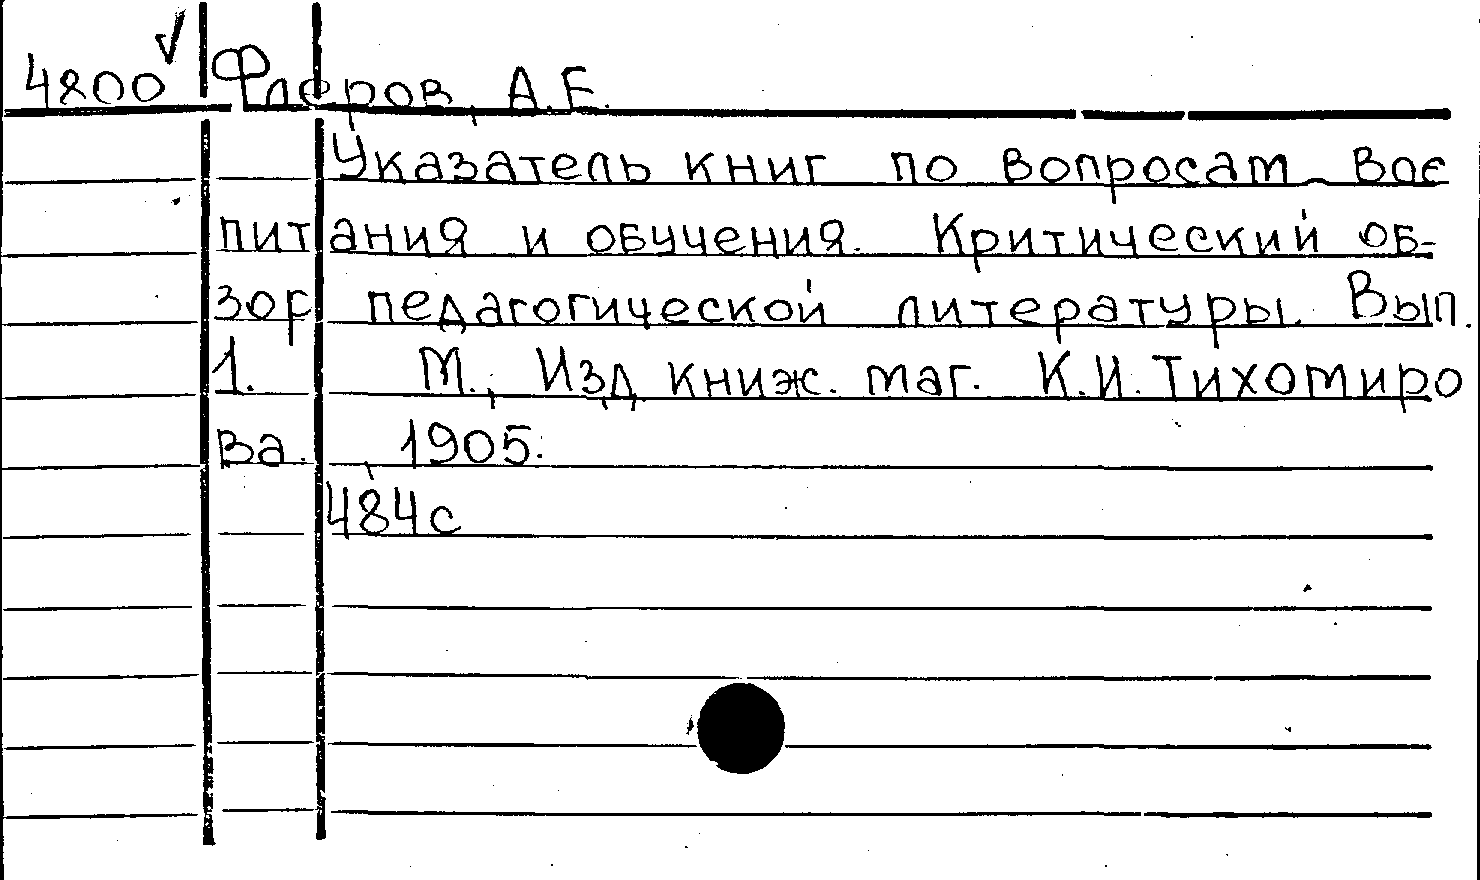 4800 Флеров, А.Е.
Указатель книг по вопросам вос
питания и обучения. Критический об-
зор педагогической литературы. Вып.
1. М., Изд. книж. маг. К.И.Тихомиро
ва. , 1905.
484с